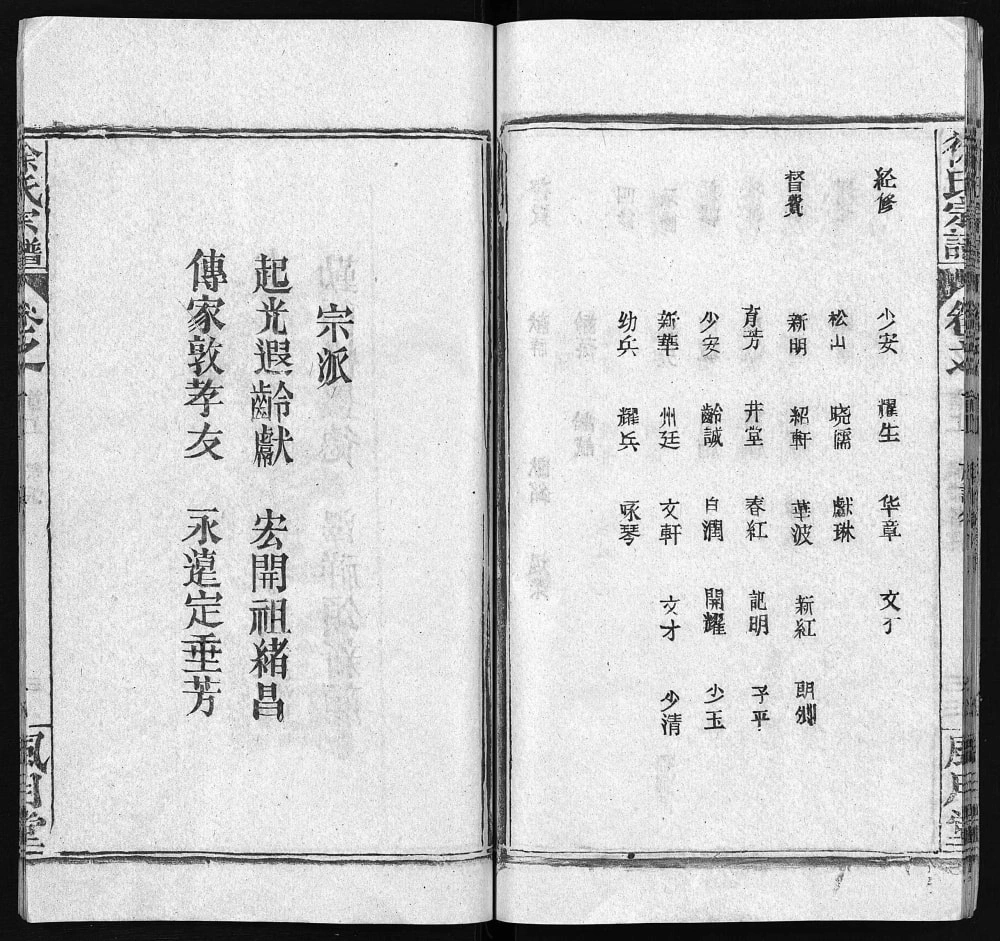 徐氏宗譜
卷之
風月堂
経修
少安 耀生 华章 文才
松山 晓儒 獻琳
督費
新明 紹軒 華波 新紅 朗卿
育芳 井堂 春紅 記明 子平
少安 齡誠 自潤 開耀 少玉
新華 州廷 文軒 文才 少清
幼兵 耀兵 咏琴
宗派
起光遐齡獻 宏開祖緒昌
傳家敦孝友 永遠定垂芳
徐氏宗譜
卷之
風月堂